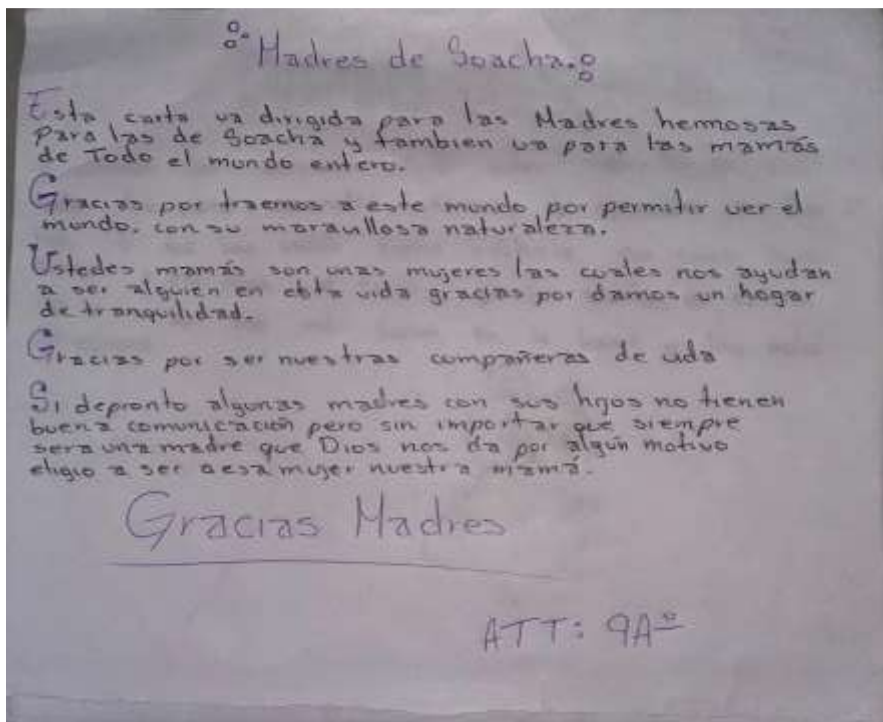 Madres de Soacha.
Esta carta va dirigida para las Madres hermosas
Para las de Soacha y tambien va para las mamás
de Todo el mundo entero.
Gracias por traernos a este mundo por permitir ver el
mundo, con su maravillosa naturaleza.
Ustedes mamás son unas mujeres las cuales nos ayudan
a ser alguien en esta vida gracias por darnos un hogar
de tranquilidad.
Gracias por ser nuestras compañeras de vida
Si depronto algunas madres con sus hijos no tienen
buena comunicación pero sin importar que siempre
sera una madre que Dios nos da por algún motivo
eligio a ser a esa mujer nuestra mamá.
Gracias Madres
ATT: 9Aº